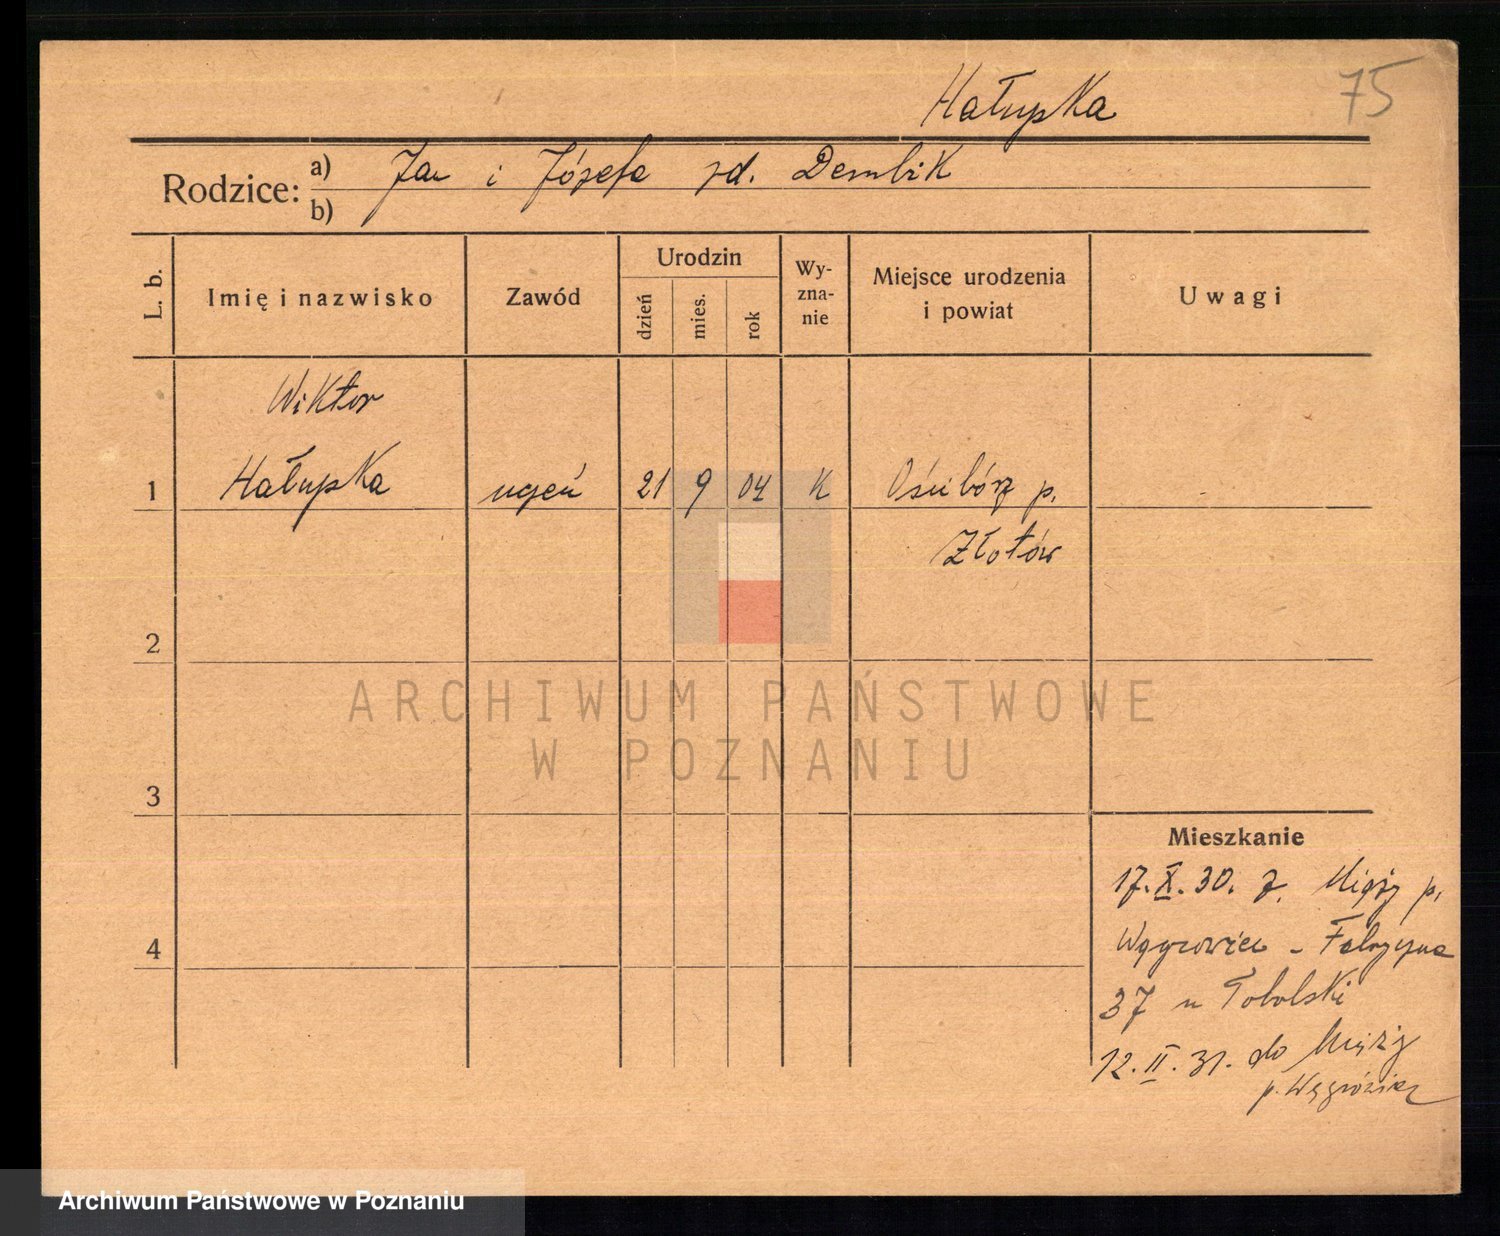 Hałupka
75
Rodzice:
a) Jan i Józefa zd. Dembik
b)
L. b.
Imię i nazwisko
Zawód
Urodzin
dzień
mies.
rok
Wy-
zna-
nie
Miejsce urodzenia
i powiat
Uwagi
Wiktor
1 Hałupka uczeń 21 9 04 K p.
Złotów
2
3
4
Mieszkanie
17.X.30. z. p.
Wągrowiec - Fabryczna
37 u Tobolski
12.II.31. do
p. Wągrówiec
ARCHIWUM PAŃSTWOWE
W POZNANIU
Archiwum Państwowe w Poznaniu